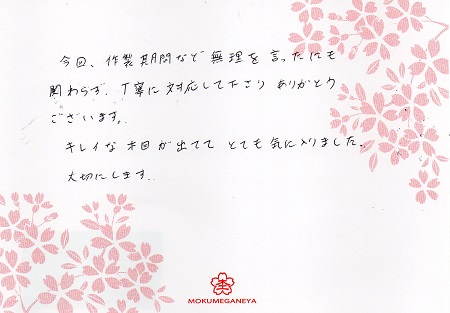 今回、作製期間など無理を言ったにも
関わらず、丁寧に対応して下さり ありがとう
ございます。
キレイな木目が出てて とても気に入りました。
大切にします。
MOKUMEGANEYA